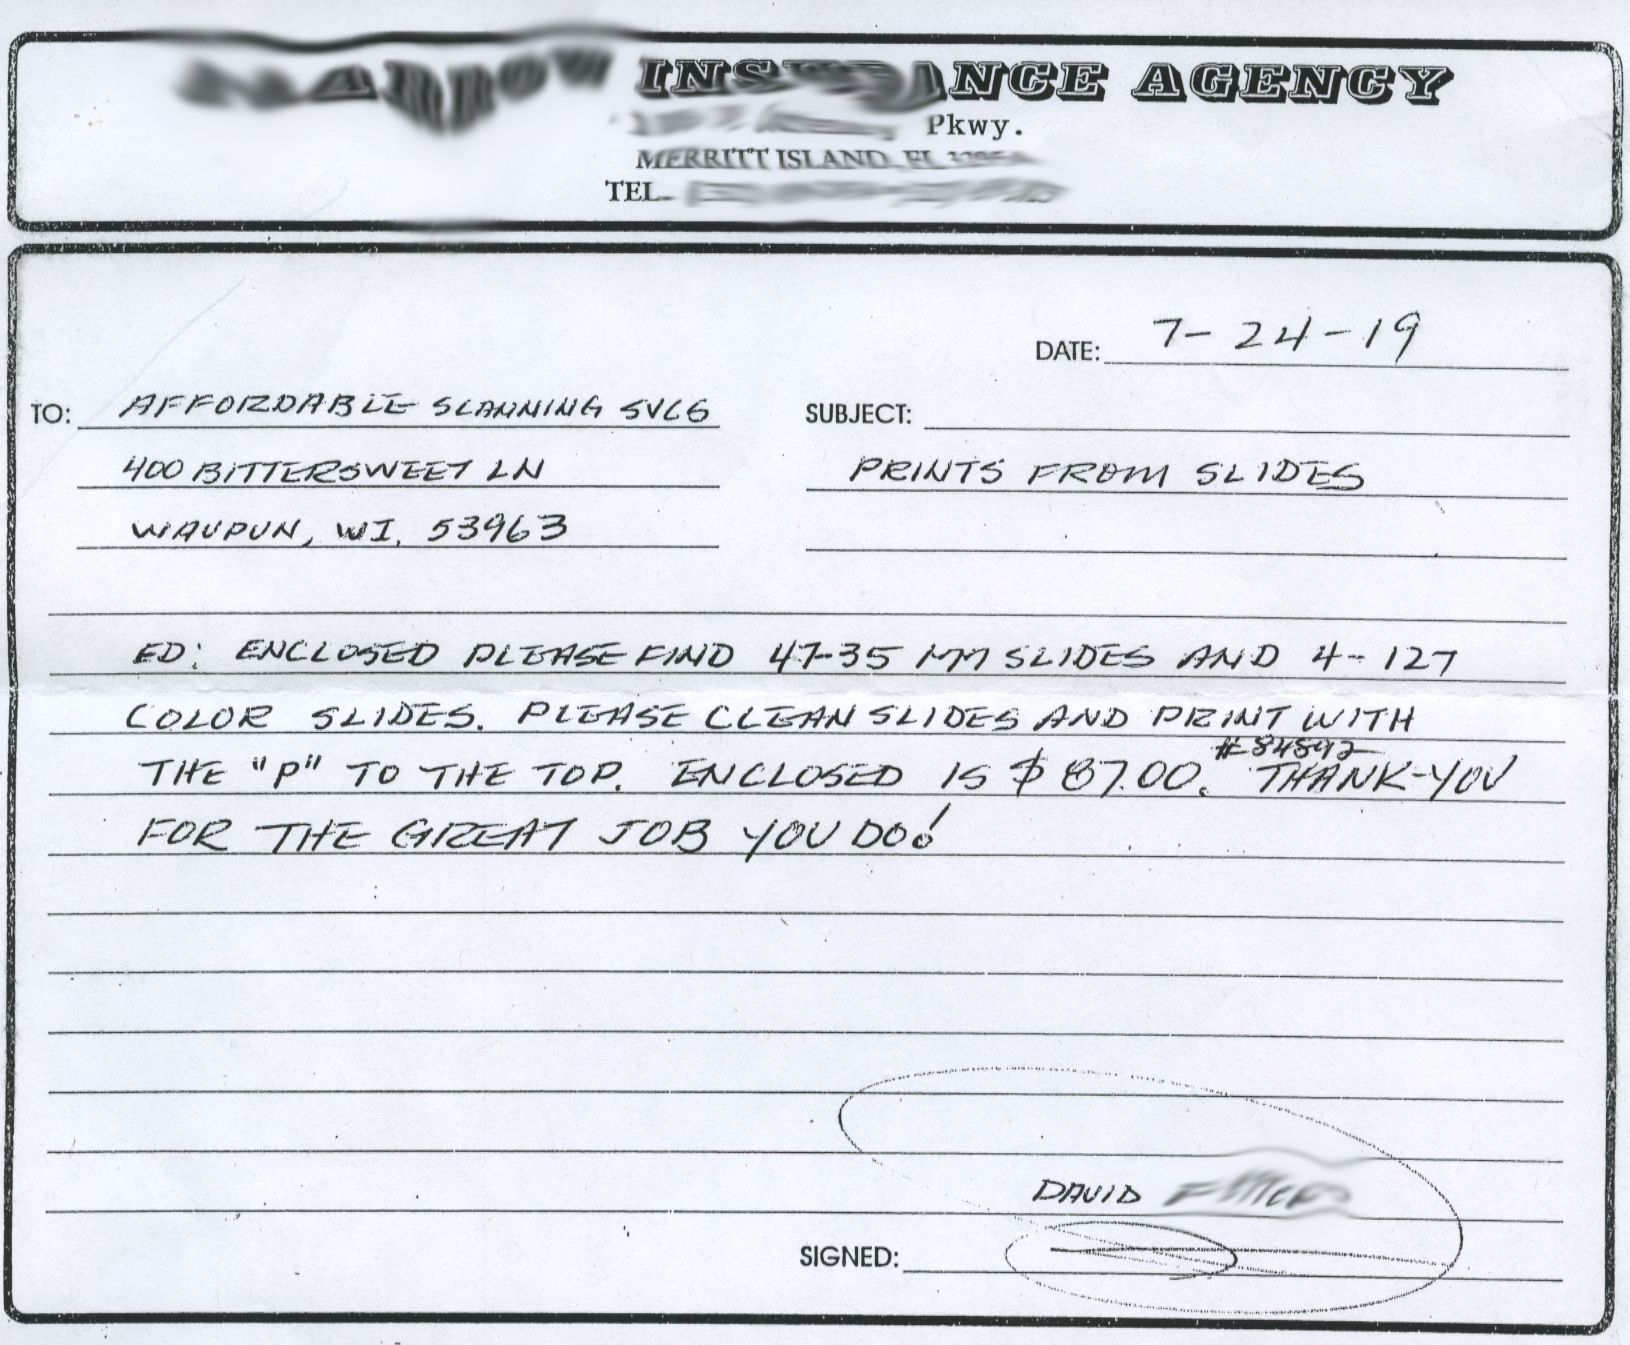 INSURANCE AGENCY
Pkwy.
MERRITT ISLAND, FL
TEL.
DATE: 7-24-19
TO: AFFORDABLE SCANNING SVCS
SUBJECT:
400 BITTERSWEET LN
PRINTS FROM SLIDES
WAUPUN, WI. 53963
ED: ENCLOSED PLEASE FIND 47-35 MM SLIDES AND 4-127
COLOR SLIDES. PLEASE CLEAN SLIDES AND PRINT WITH
#84892
THE "P" TO THE TOP. ENCLOSED IS $87.00. THANK-YOU
FOR THE GREAT JOB YOU DO!
DAVID
SIGNED: